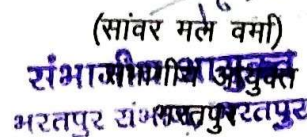 (सांवर मल वर्मा)
संभागीय आयुक्त
भरतपुर संभाग भरतपुर